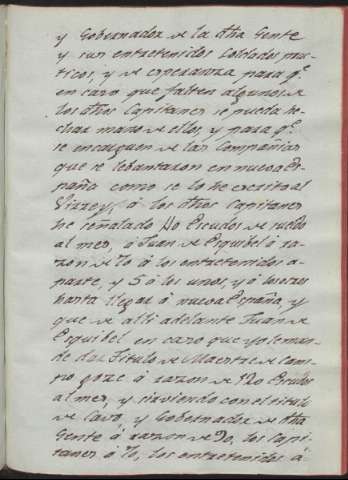 y Gobernador de la dha Gente
y sus entretenidos soldados prac-
ticos, y de esperanza para q.e
en caso que falten algunos de
los dhos Capitanes se pueda he-
char mano de ellos, y para q.e
se encarguen de las Compañias
que se lebantaron en nueva Es-
paña como se lo he escrito al
Virrey, á los dhos Capitanes
he señalado 40 Escudos de sueldo
al mes, á Juan de Esquibel á ra-
zon de 70 á los entretenidos a-
parte, y 5 á los unos, y á los otros
hasta llegar á nueva España, y
que de alli adelante Juan de
Esquibel en caso que yo le man-
de dar Titulo de Maestre de Cam-
po goze á razon de 120 Escudos
al mes, y sirviendo con el titulo
de Cavo, y Gobernador de dha
Gente á razon de 90, los Capi-
tanes á 70, los entretenidos á